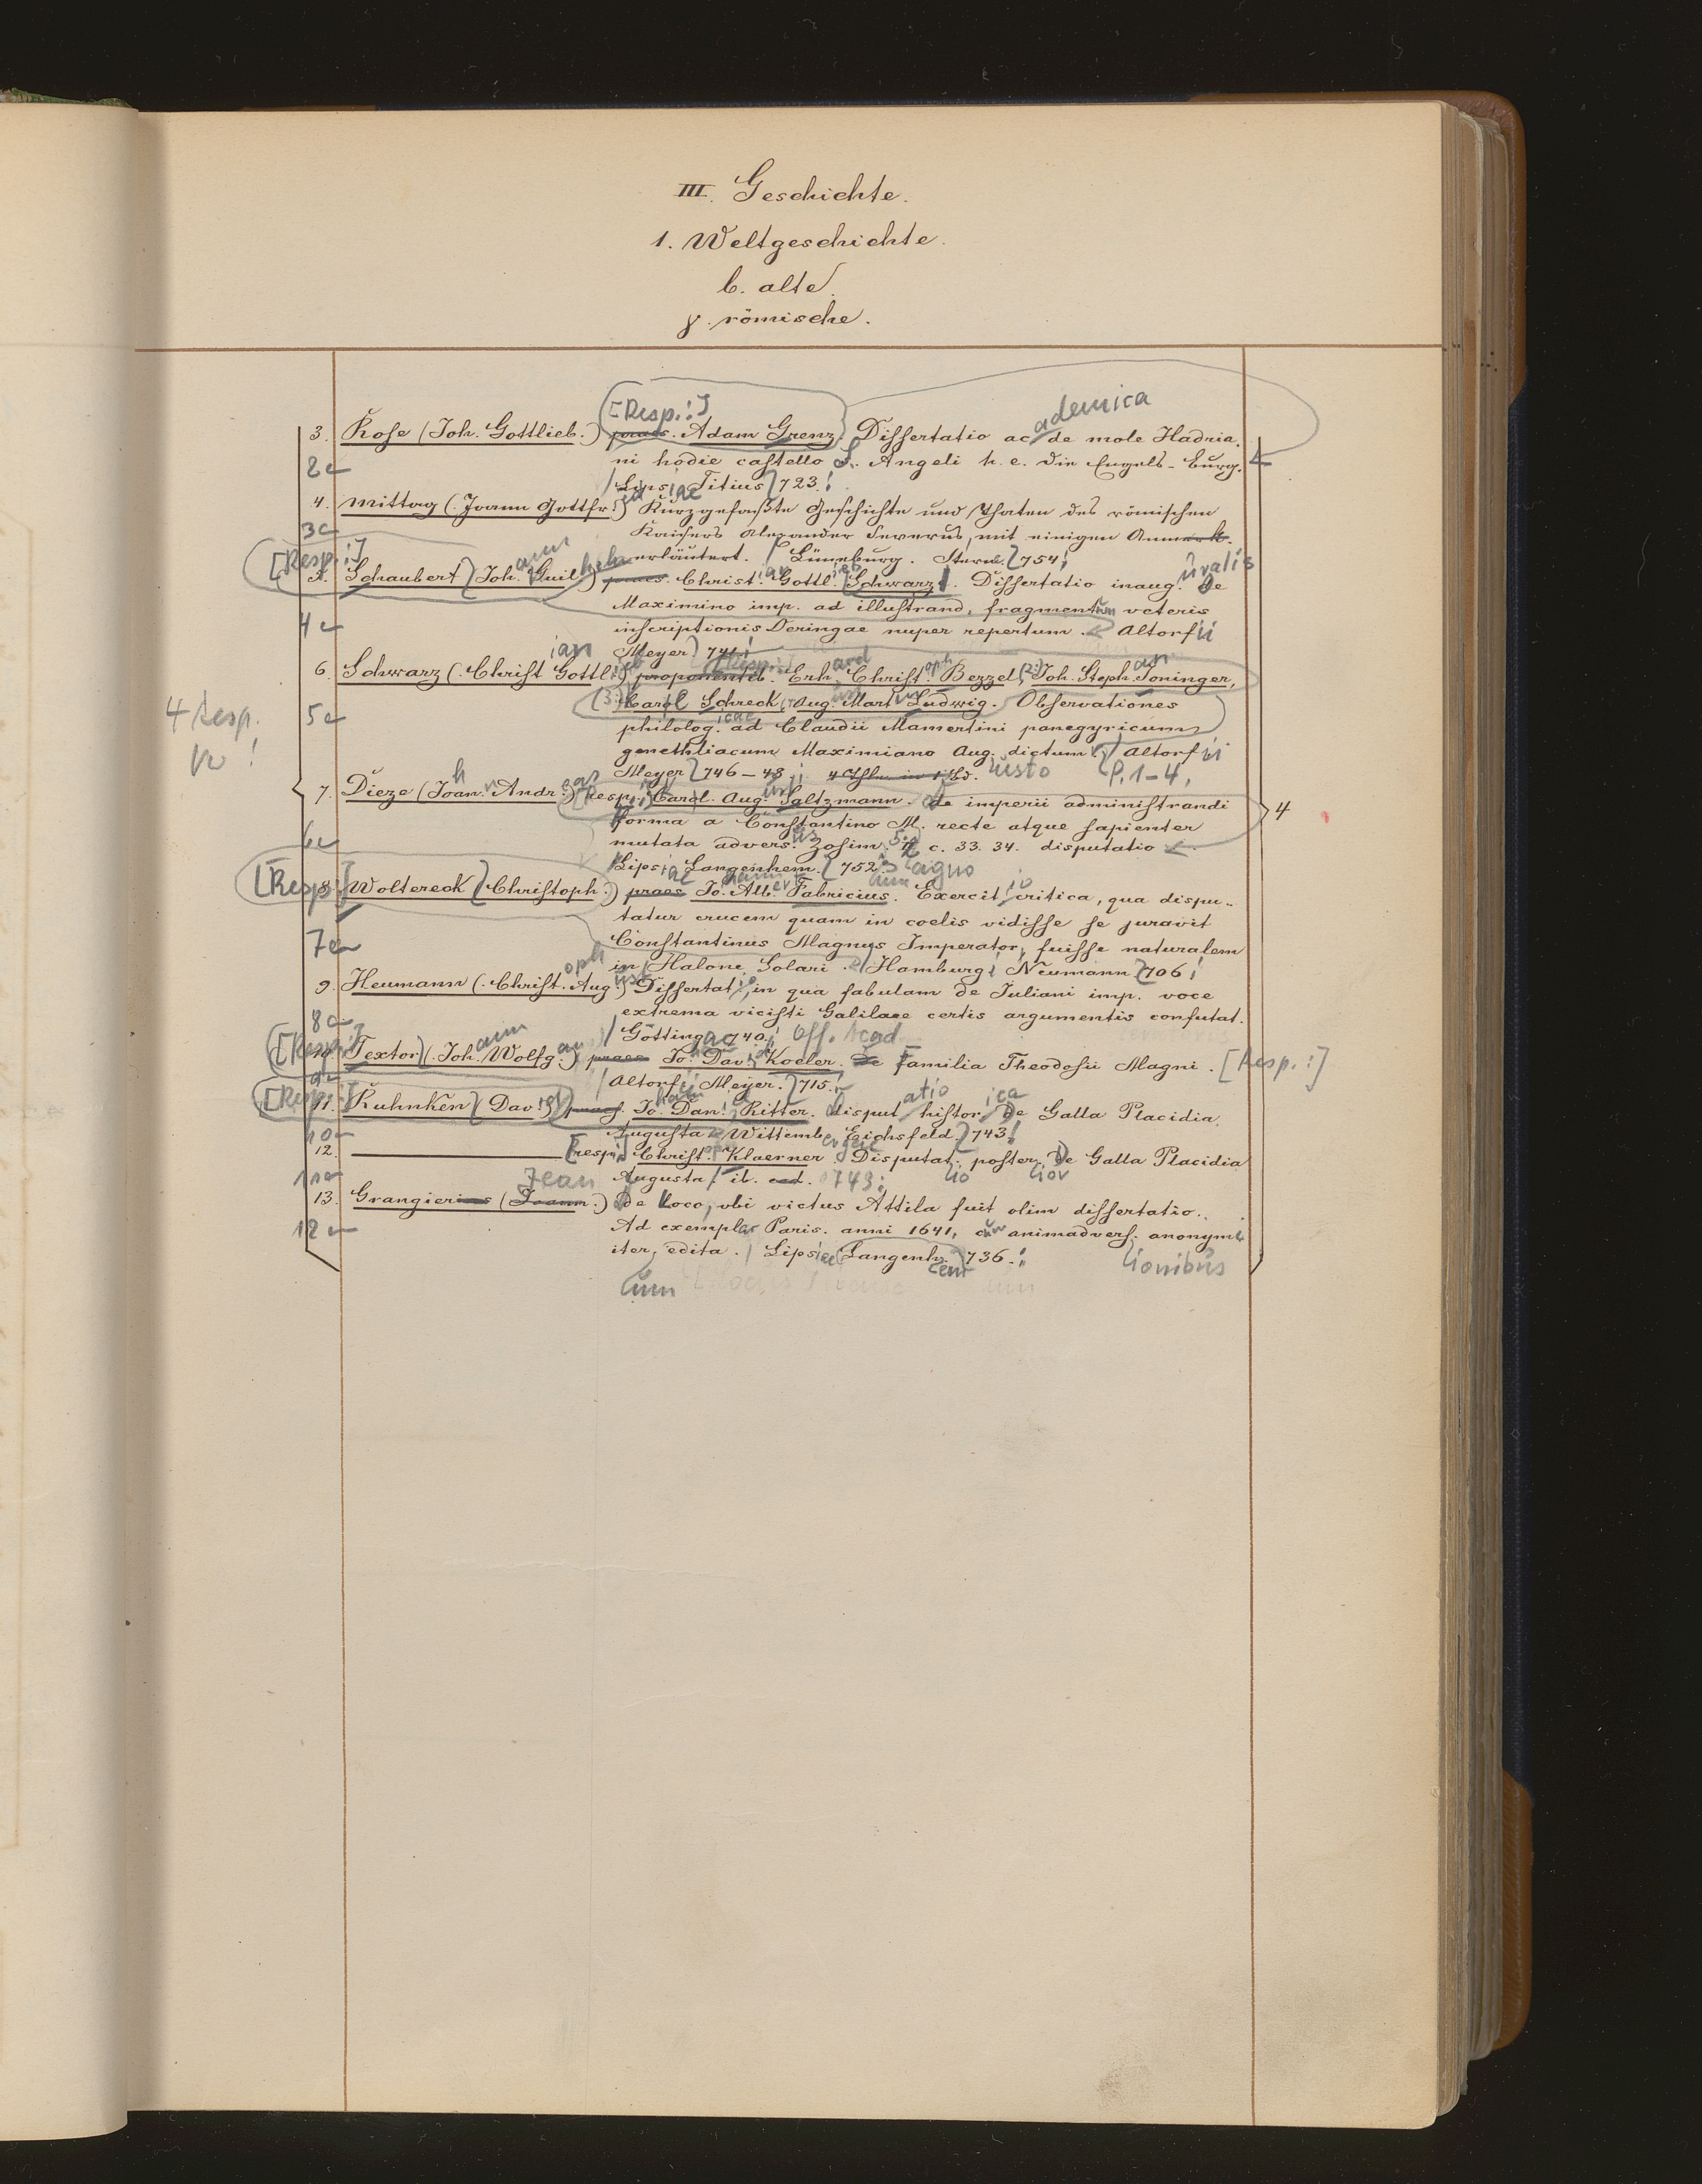 III. Geschichte.
1. Weltgeschichte.
b. alte.
γ. römische.
[Resp.:] ademica
3. Rose (Joh. Gottlieb.) praes. Adam Grenz. Dissertatio ac de mole Hadria.
2 ni hodie castello S. Angeli h. e. die Engels-Burg.
Lipsiae Titius 723.
4. Mittag (Joann Gottfr.) Kurzgefaßte Geschichte und Thaten des römischen
3 Kaisers Alexander Severus, mit einigen Anmerk.
[Resp.:] ann erläutert. Lüneburg. Stern. 754. uralis
5. Schaubert (Joh. Guilhelm) praes. Christ. Gottl. Schwarz. Dissertatio inaug. De
Maximino imp. ad illustrand. fragmentum veteris
4 inscriptionis Deringae nuper repertum. Altorfii
ian Meyer 741.
6. Schwarz (Christ Gottl.) proponentib. Erh. Christ. Bezzel, Joh. Steph. Soninger,
4 Resp. Carol Schreck, Aug. Mart Ludwig. Observationes
5 philolog. ad Claudii Mamertini panegyricum
genethliacum Maximiano Aug. dictum Altorfii
Meyer 746–48. 4 Thle in 1 Bd. P. 1–4.
7. Dieze (Joan. Andr.) Resp. Carol. Aug. Saltzmann. de imperii administrandi 4
forma a Constantino M. recte atque sapienter
6 mutata advers. Zosim. c. 33. 34. disputatio
Lipsiae Langenhem. 752.
[Resp.:] 8. Woltereck (Christoph.) praes Jo. Alb. Fabricius. Exercit critica, qua dispu-
tatur crucem quam in coelis vidisse se juravit
7 Constantinus Magnus Imperator, fuisse naturalem
in Halone Solari. Hamburg. Neumann 706.
9. Heumann (Christ. Aug.) Dissertat. in qua fabulam de Juliani imp. voce
8 extrema vicisti Galilaee certis argumentis confutat.
Götting 740. Off. Acad.
[Resp.:] 10. Textor (Joh. Wolfg.) praes Jo. Dav. Koeler. De Familia Theodosii Magni. [Resp.:]
9 Altorfii Meyer. 715.
[Resp.:] 11. Ruhnken (Dav.) praes. Jo. Dan. Ritter. disput histor. De Galla Placidia
10 Augusta Wittemb. Eichsfeld. 743.
12. resp. Christ. Klaerner Disputat. poster. De Galla Placidia
11 Augusta. ib. ead. 743.
Jean
13. Grangierius (Joann.) De Loco, ubi victus Attila fuit olim dissertatio.
12 Ad exemplar Paris. anni 1641, cum animadvers. anonymi
iter. edita. Lipsiae Langenh. 736.
tionibus
um